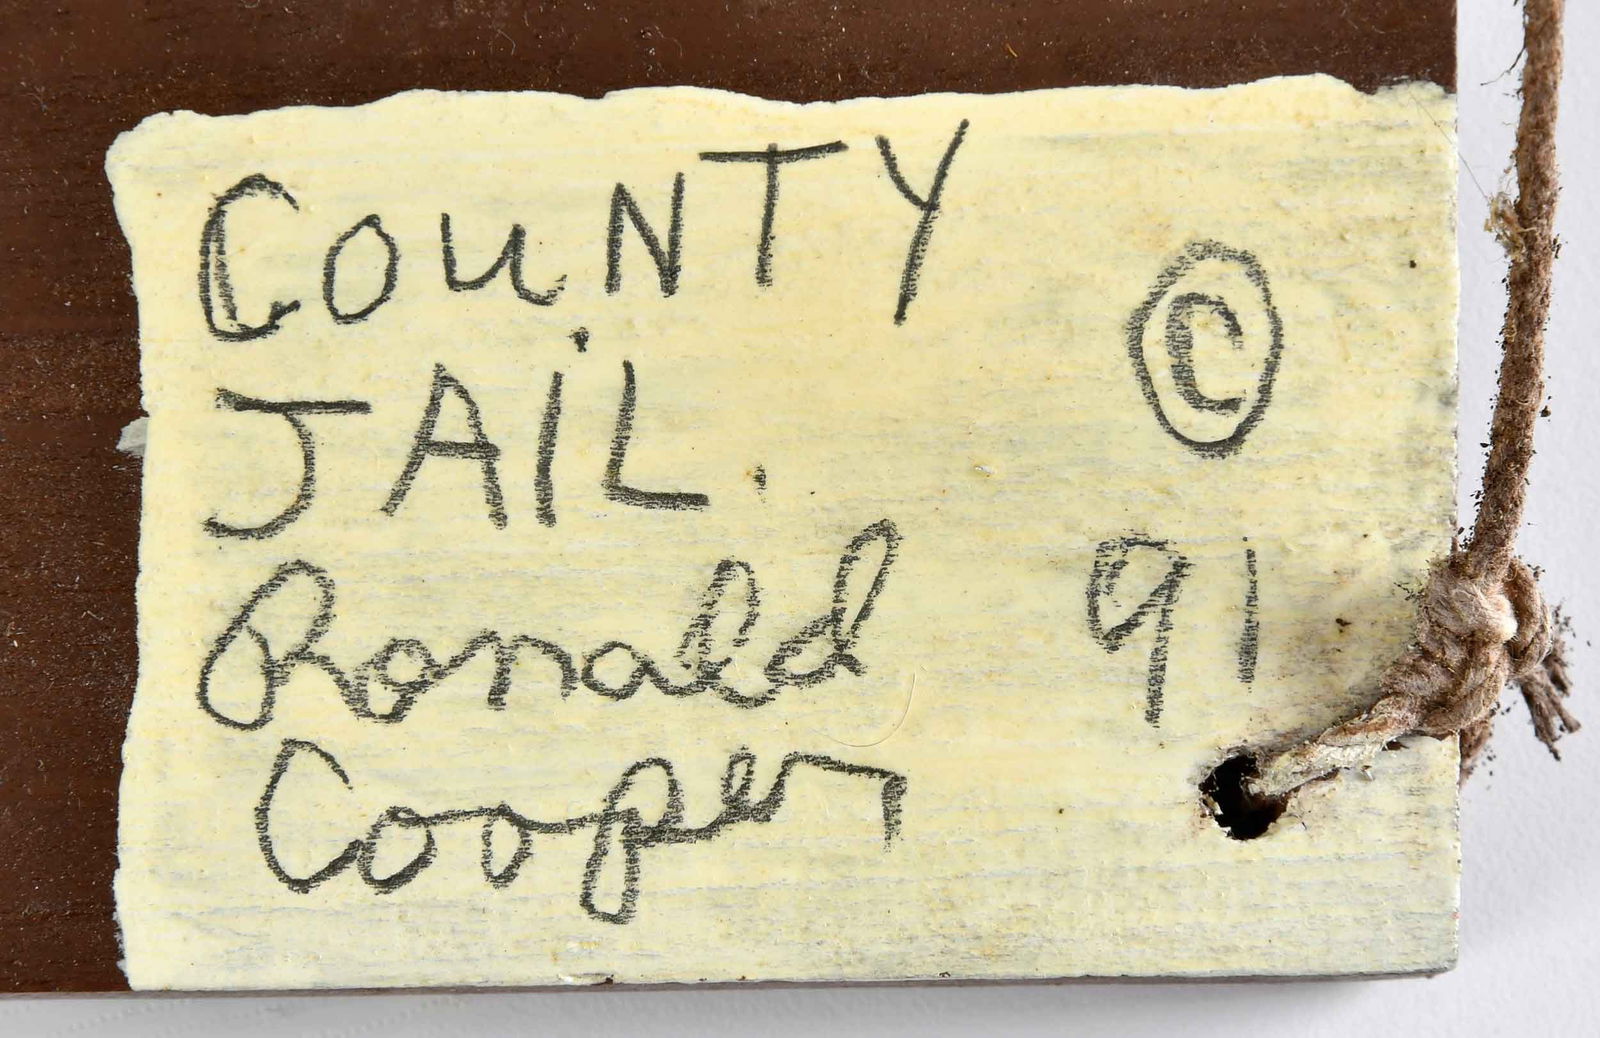 COUNTY
JAiL.
Ronald
Cooper
©
91